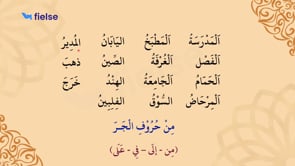 fielse
اَلْمَدْرَسَةُ اَلْمَطْبَخُ اليَابَانُ المُدِيرُ
اَلْفَصْلُ اَلْغُرْفَةُ الصِّينُ ذَهَبَ
اَلْحَمَّامُ اَلْجَامِعَةُ الهِنْدُ خَرَجَ
اَلْمِرْحَاضُ السُّوْقُ الفِلِبِّينُ
مِنْ حُرُوْفِ الْجَـرِّ
(مِن - إِلَى - فِي - عَلَى)